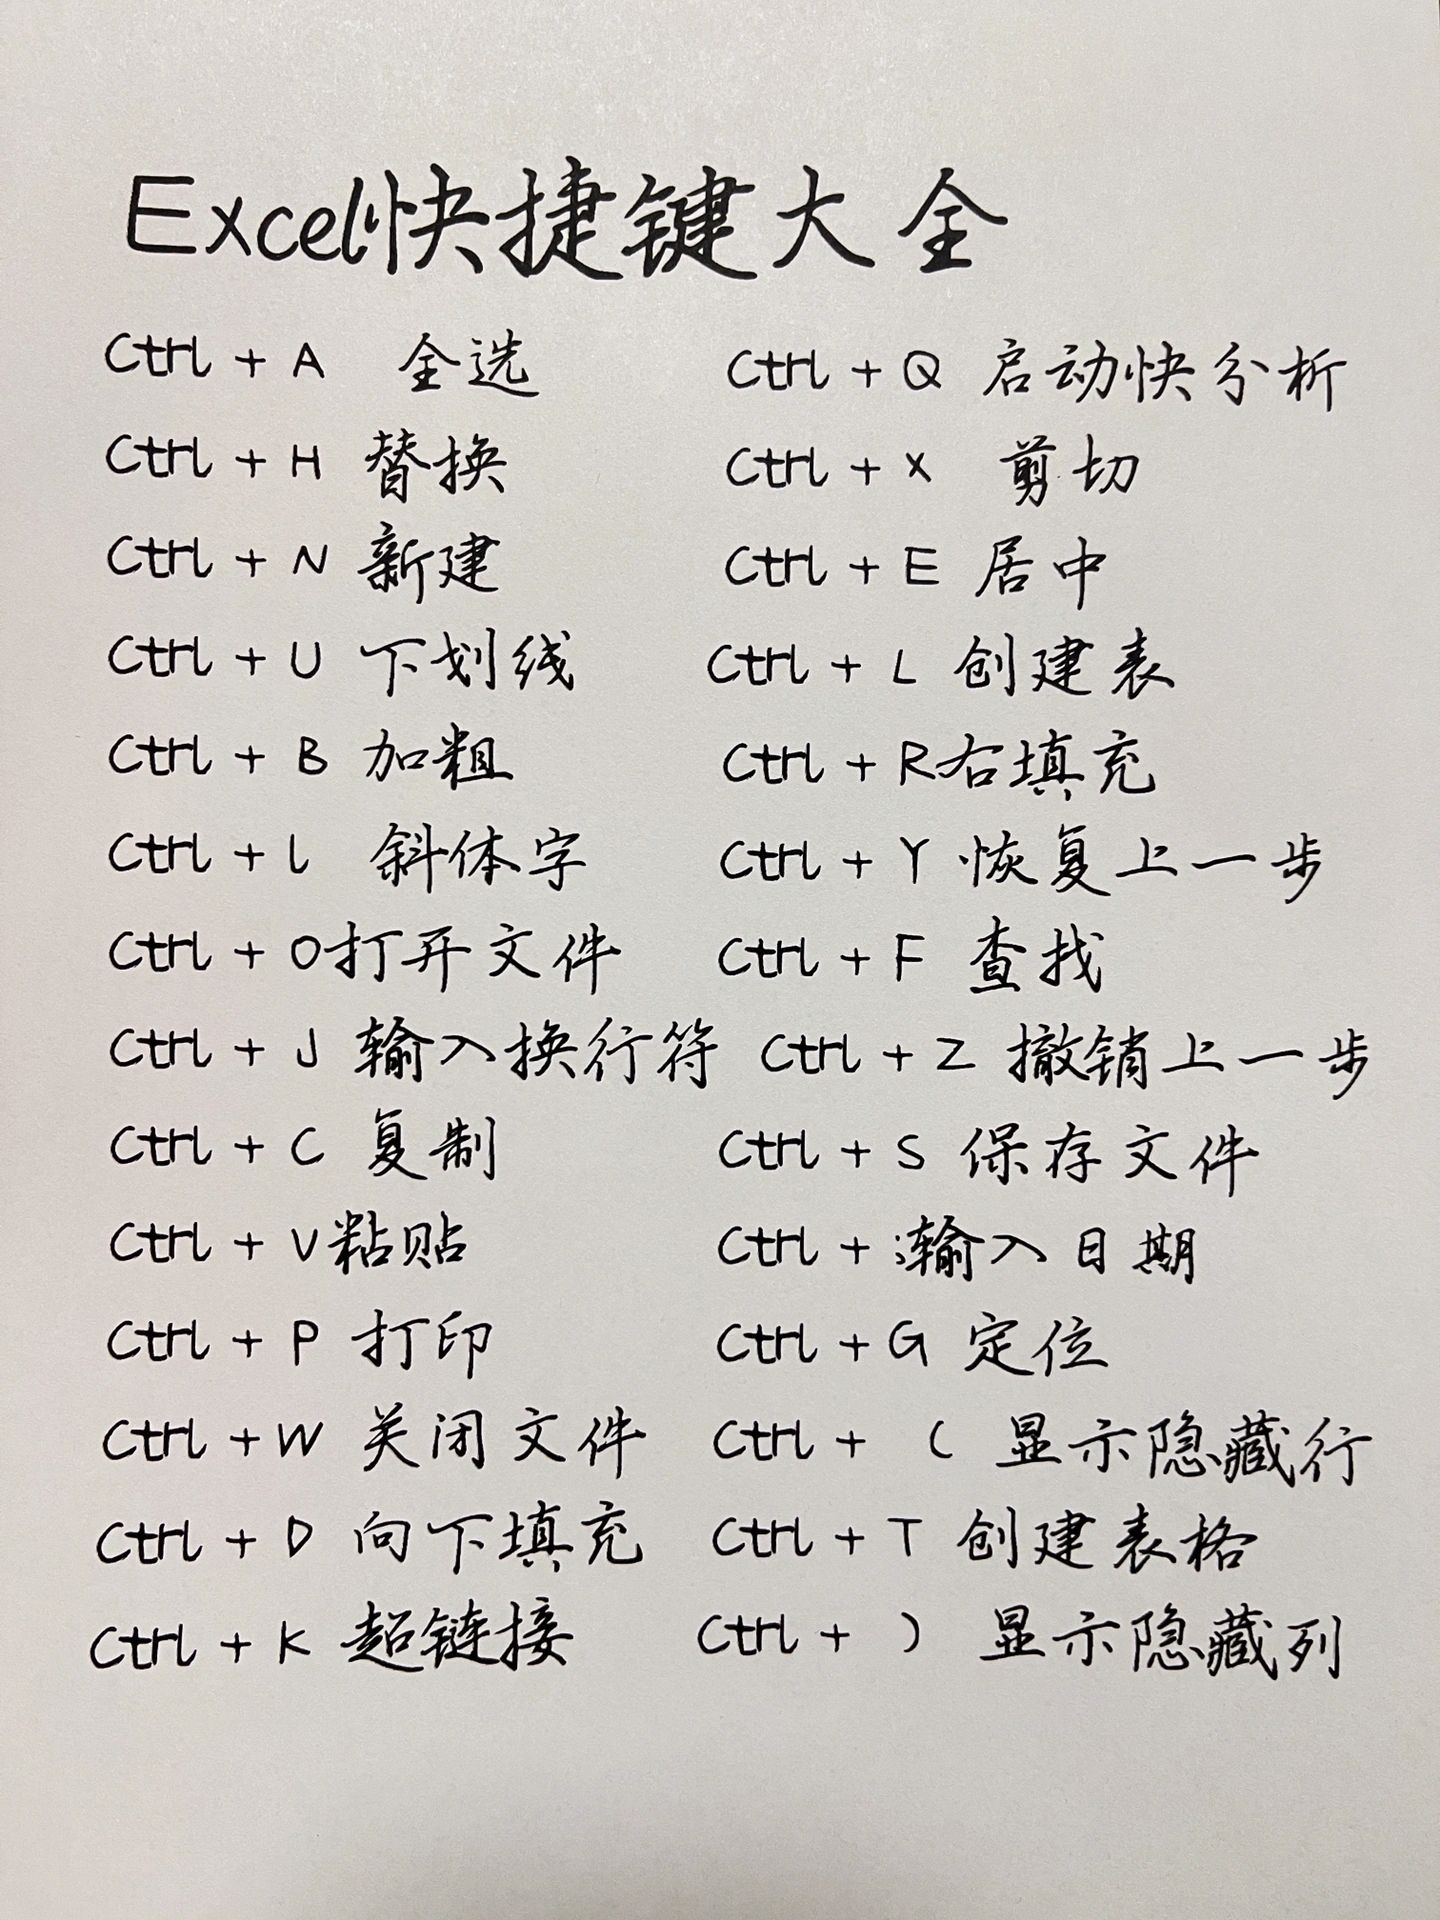 Excel快捷键大全
Ctrl + A 全选
Ctrl + H 替换
Ctrl + N 新建
Ctrl + U 下划线
Ctrl + B 加粗
Ctrl + l 斜体字
Ctrl + O打开文件
Ctrl + J 输入换行符
Ctrl + C 复制
Ctrl + V粘贴
Ctrl + P 打印
Ctrl + W 关闭文件
Ctrl + D 向下填充
Ctrl + K 超链接
Ctrl + Q 启动快分析
Ctrl + X 剪切
Ctrl + E 居中
Ctrl + L 创建表
Ctrl + R右填充
Ctrl + Y 恢复上一步
Ctrl + F 查找
Ctrl + Z 撤销上一步
Ctrl + S 保存文件
Ctrl + ;输入日期
Ctrl + G 定位
Ctrl + ( 显示隐藏行
Ctrl + T 创建表格
Ctrl + ) 显示隐藏列